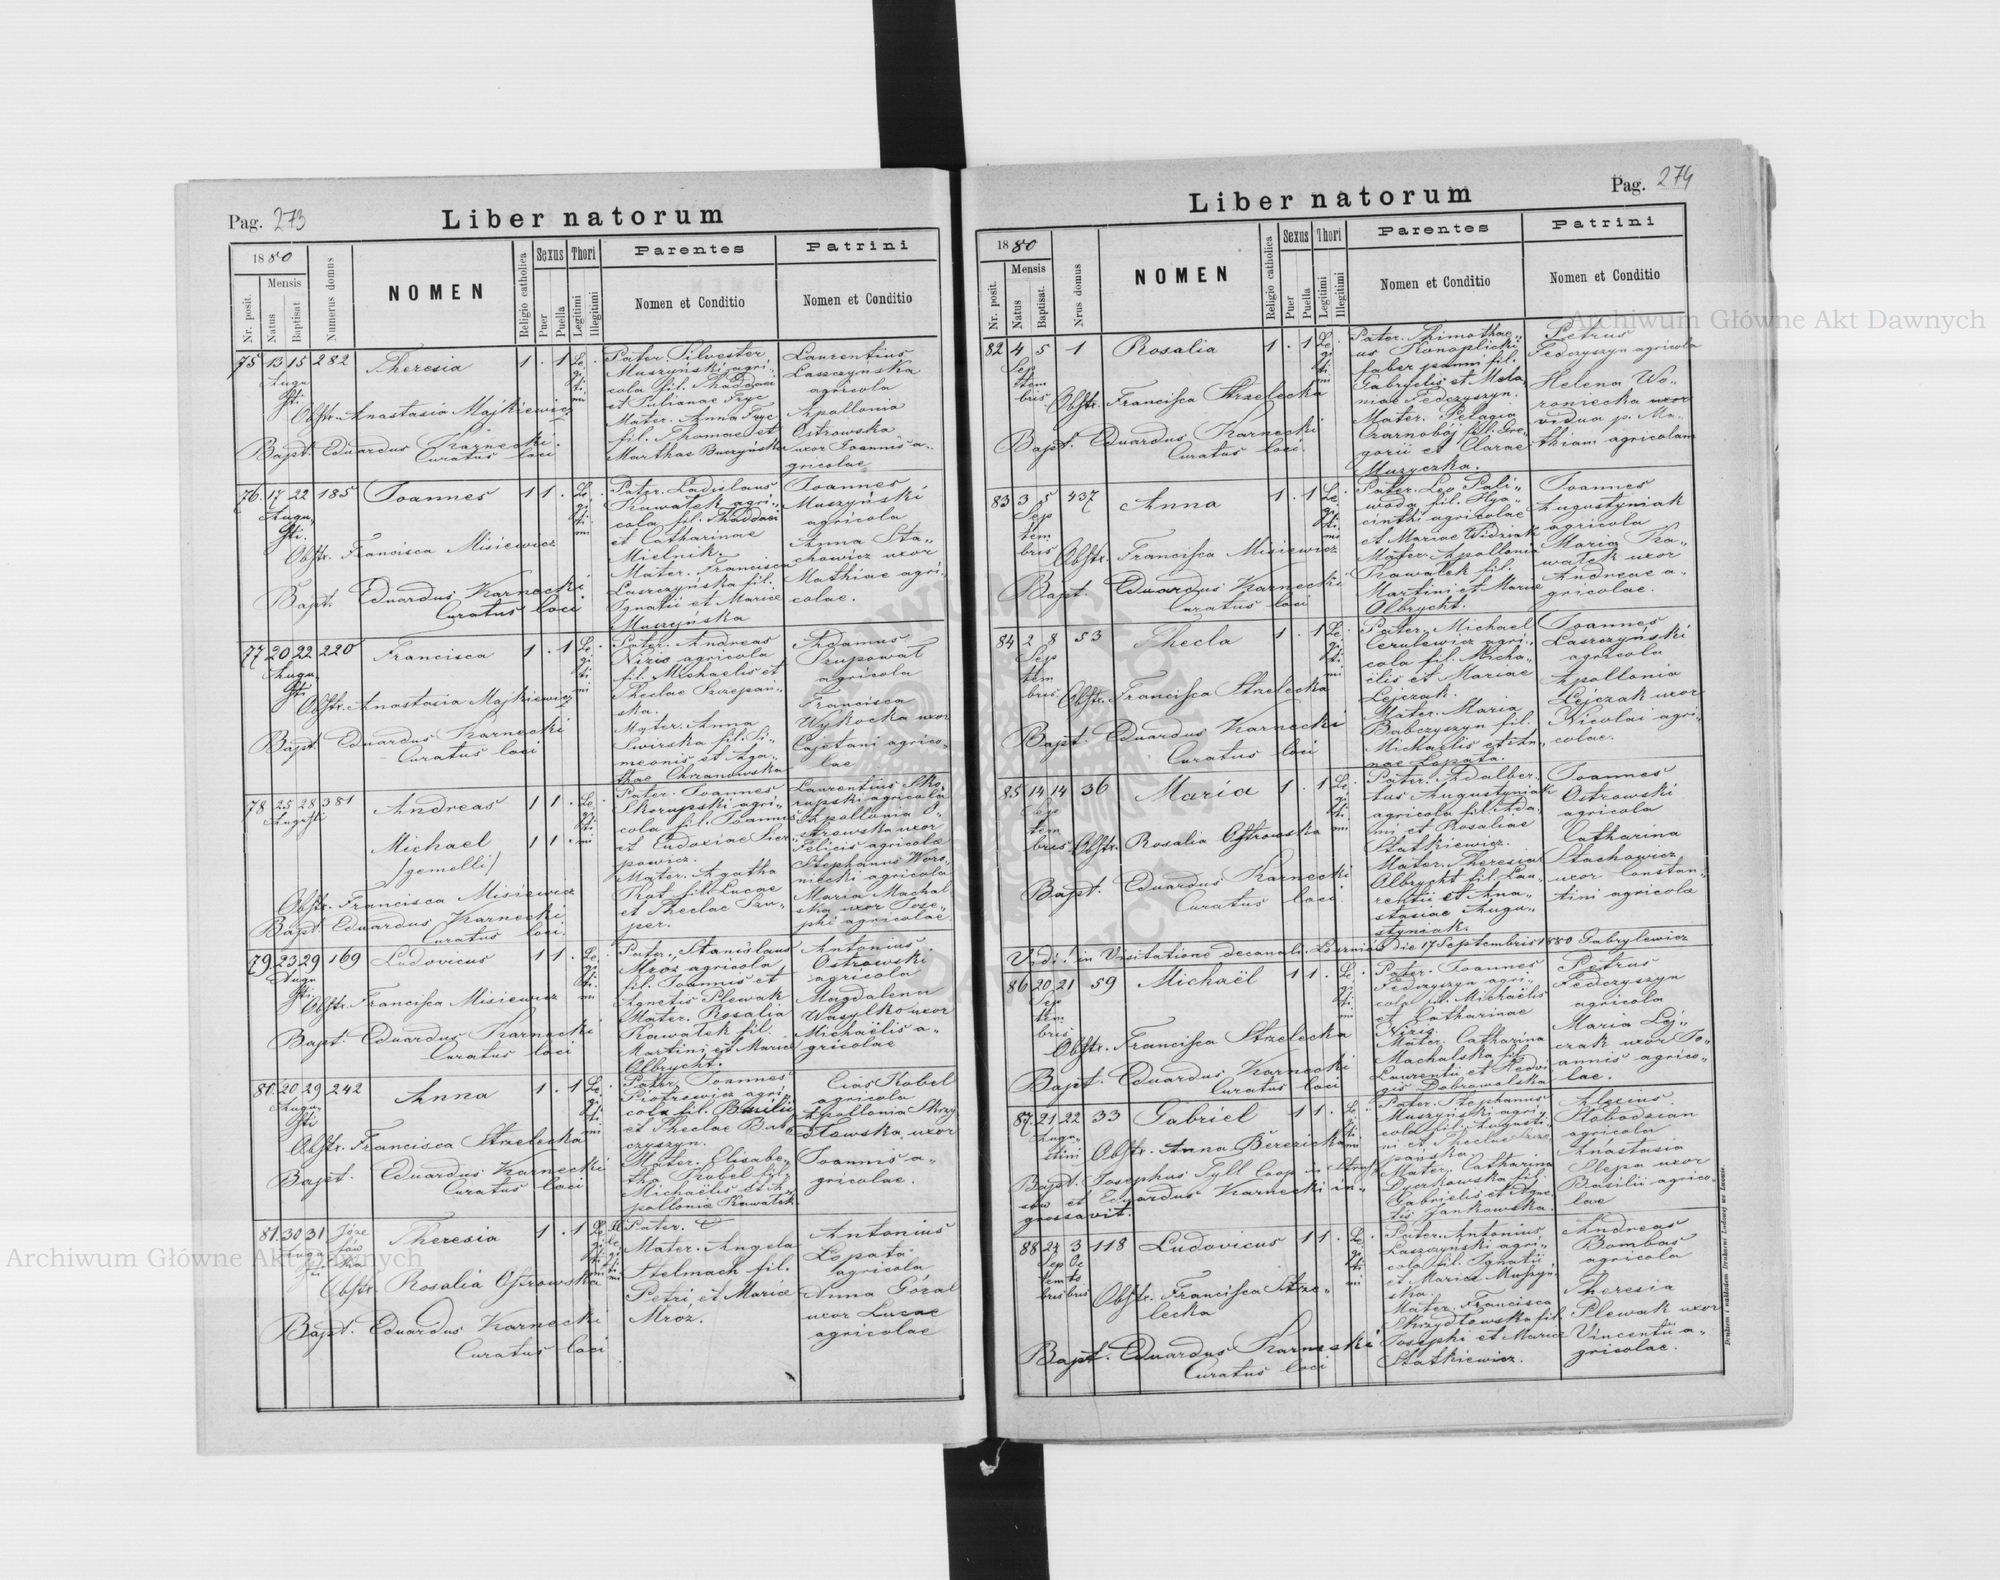 Pag. 273
Liber natorum
1880
Mensis
Nr. posit.
Natus
Baptisat
Numerus domus
NOMEN
Religio catholica
Sexus
Puer
Puella
Thori
Legitimi
Illegitimi
Parentes
Nomen et Conditio
Patrini
Nomen et Conditio
75 13 15 282 Theresia 1 . 1 Legitimi .
Augusti
Obstr. Anastasia Majkiewicz
Bapt. Eduardus Karnecki
Curatus loci
Pater. Silvester
Muszyński agri-
cola fil. Thaddaei
et Julianae Fryc
Mater. Anna Fryc
fil. Thomae et
Marthae Buczyńska
Laurentius
Laszczynska
agricola
Apollonia
Ostrowska
uxor Joannis a-
gricolae
76. 17 22 185 Joannes 1 1 . Legitimi .
Augusti.
Obstr. Francisca Misiewicz
Bapt. Eduardus Karnecki
Curatus loci
Pater. Ladislaus
Kawalek agri-
cola fil. Thaddaei
et Catharinae
Mielnik.
Mater. Francisca
Laszczyńska fil.
Ignatii et Mariae
Muszyńska
Joannes
Muszyński
agricola
Anna Sta-
chowicz uxor
Mathiae agri-
colae.
77 20 22 220 Francisca 1 . 1 Legitimi .
Augusti.
Obstr. Anastasia Majkiewicz
Bapt. Eduardus Karnecki
Curatus loci
Pater. Andreas
Nizio agricola
fil. Michaelis et
Theclae Szczepań-
ska.
Mater. Anna
Swirska fil. Si-
meonis et Aga-
thae Chrzanowska
Adamus
Szupowat
agricola
Francisca
Wykocka uxor
Cajetani agrico-
lae
78 25 28 381 Andreas 1 1 . Legitimi
Augusti
Michael 1 1 .
/gemelli/
Obstr. Francisca Misiewicz
Bapt. Eduardus Karnecki
Curatus loci.
Pater. Joannes
Skorupski agri-
cola fil. Joannis
et Eudoxiae Sier-
powicz.
Mater. Agatha
Kot fil. Lucae
et Theclae Szu-
per.
Laurentius Sko-
rupski agricola
Apollonia O-
strowska uxor
Felicis agricolae
Stephanus Woro-
niecki agricola
Maria Machal-
ska uxor Jose-
phi agricolae
79 23 29 169 Ludovicus 1 1 . Legitimi .
Augusti
Obstr. Francisca Misiewicz
Bapt. Eduardus Karnecki
Curatus loci
Pater. Stanislaus
Mroz agricola
fil. Joannis et
Agnetis Plewak
Mater. Rosalia
Kawatek fil.
Martini et Mariae
Olbrycht.
Antonius
Ostrowski
agricola
Magdalena
Wasylko uxor
Michaëlis a-
gricolae
80. 20 29 242 Anna 1 . 1 Legitimi .
Augusti
Obstr. Francisca Strzelecka
Bapt. Eduardus Karnecki
Curatus loci
Pater. Joannes
Piotrowicz agri
cola fil. Basilii
et Theclae Bab
czyszyn.
Mater. Elisabe-
tha Kobel fil.
Michaëlis et A-
pollonia Kawatek
Elias Kobel
agricola
Apollonia Skrzy
dlawska uxor
Joannis a-
gricolae.
81. 30 31 Józefówka Theresia 1 . 1
Augusti
Obstr. Rosalia Ostrowska
Bapt. Eduardus Karnecki
Curatus loci
Pater. O
Mater. Angela
Stelmach fil.
Petri et Mariae
Mróz.
Antonius
Lopata
agricola
Anna Góral
uxor Lucae
agricolae
Pag. 274
Liber natorum
1880
Mensis
Nr. posit.
Natus
Baptisat.
Nrus domus
NOMEN
Religio catholica
Sexus
Puer
Puella
Thori
Legitimi
Illegitimi
Parentes
Nomen et Conditio
Patrini
Nomen et Conditio
82 4 5 1 Rosalia 1 . 1 Legitimi .
Septembris
Obstr. Francisca Strzelecka
Bapt. Eduardus Karnecki
Curatus loci.
Pater. Thimothae-
us Konoplicki
faber fil.
Gabryelis et Mela-
niae Fedczyszyn.
Mater. Pelagia
Czarnobój fil. Gre-
gorii et Clarae
Muzyczka.
Petrus
Fedczyszyn agricola
Helena Wo-
roniecka uxor
vidua p. Ma-
thiam agricolam
83 3 5 437 Anna 1 . 1 Legitimi .
Septembris
Obstr. Francisca Misiewicz
Bapt. Eduardus Karnecki
Curatus loci
Pater. Leo Pali-
woda fil. Hya-
cinthi agricolae
et Mariae Widziak
Mater. Apollonia
Kawatek fil.
Martini et Mariae
Olbrycht.
Joannes
Augustyniak
agricola
Maria Ka-
watek uxor
Andreae a-
gricolae.
84 2 8 53 Thecla 1 . 1 Legitimi .
Septembris.
Obstr. Francisca Strzelecka
Bapt. Eduardus Karnecki
Curatus loci
Pater. Michael
Cerulewicz agri-
cola fil. Micha-
ëlis et Mariae
Lejczak.
Mater. Maria
Babczyszyn fil.
Michaelis et An-
nae Lopata.
Joannes
Laszczyński
agricola
Apollonia
Lejczak uxor
Nicolai agri-
colae.
85 14 14 36 Maria 1 . 1 Legitimi .
Septembris
Obstr. Rosalia Ostrowska
Bapt. Eduardus Karnecki
Curatus loci.
Pater. Adalber-
tus Augustyniak
agricola fil. Ada-
mi et Rosaliae
Statkiewicz.
Mater. Theresia
Olbrycht fil. Lau-
rentii et Ana-
stasiae Augu-
styniak.
Joannes
Ostrowski
agricola
Catharina
Stachowicz
uxor Constan-
tini agricola
Vidi in Visitatione decanali. die 17 Septembris 1880 Gabrylewicz
86 20 21 59 Michaël 1 1 . Legitimi .
Septembris
Obstr. Francisca Strzelecka
Bapt. Eduardus Karnecki
Curatus loci
Pater. Joannes
Fedczyszyn agri-
cola fil. Michaëlis
et Catharinae
Nizio.
Mater. Catharina
Machalska fil.
Laurentii et Hedvi-
gis Dobrowolska
Petrus
Fedczyszyn
agricola
Maria Lej-
czak uxor Jo-
annis agrico-
lae.
87. 21 22 33 Gabriel 1 1 .
Obstr. Anna Berezicka
Bapt. Josephus Tyll Coop in
et Eduardus Karnecki in-
gressavit.
Pater. Stephanus
Muszyński agri-
cola fil. Augusti-
ni et Theclae Szcze
pańska.
Mater. Catharina
Dyczkowska fil.
Gabrielis et Agne-
tis Jankowska.
agricola
Anastasia
Slepa uxor
Basilii agrico-
lae
88 24 3 118 Ludovicus 1 1 . Legitimi .
Septembris Octobris
Obstr. Francisca Strze-
lecka
Bapt. Eduardus Karnecki
Curatus loci
Pater. Antonius
Laszczyński agri-
cola fil. Ignatii
et Mariae Muszyń-
ska.
Mater. Francisca
Skrzydlowska fil.
Josephi et Mariae
Statkiewicz.
Andreas
Bombas
agricola
Theresia
Plewak uxor
Vincentii a-
gricolae.
Drukiem i nakładem Drukarni Ludowej we Lwowie.
Archiwum Główne Akt Dawnych
Archiwum Główne Akt Dawnych